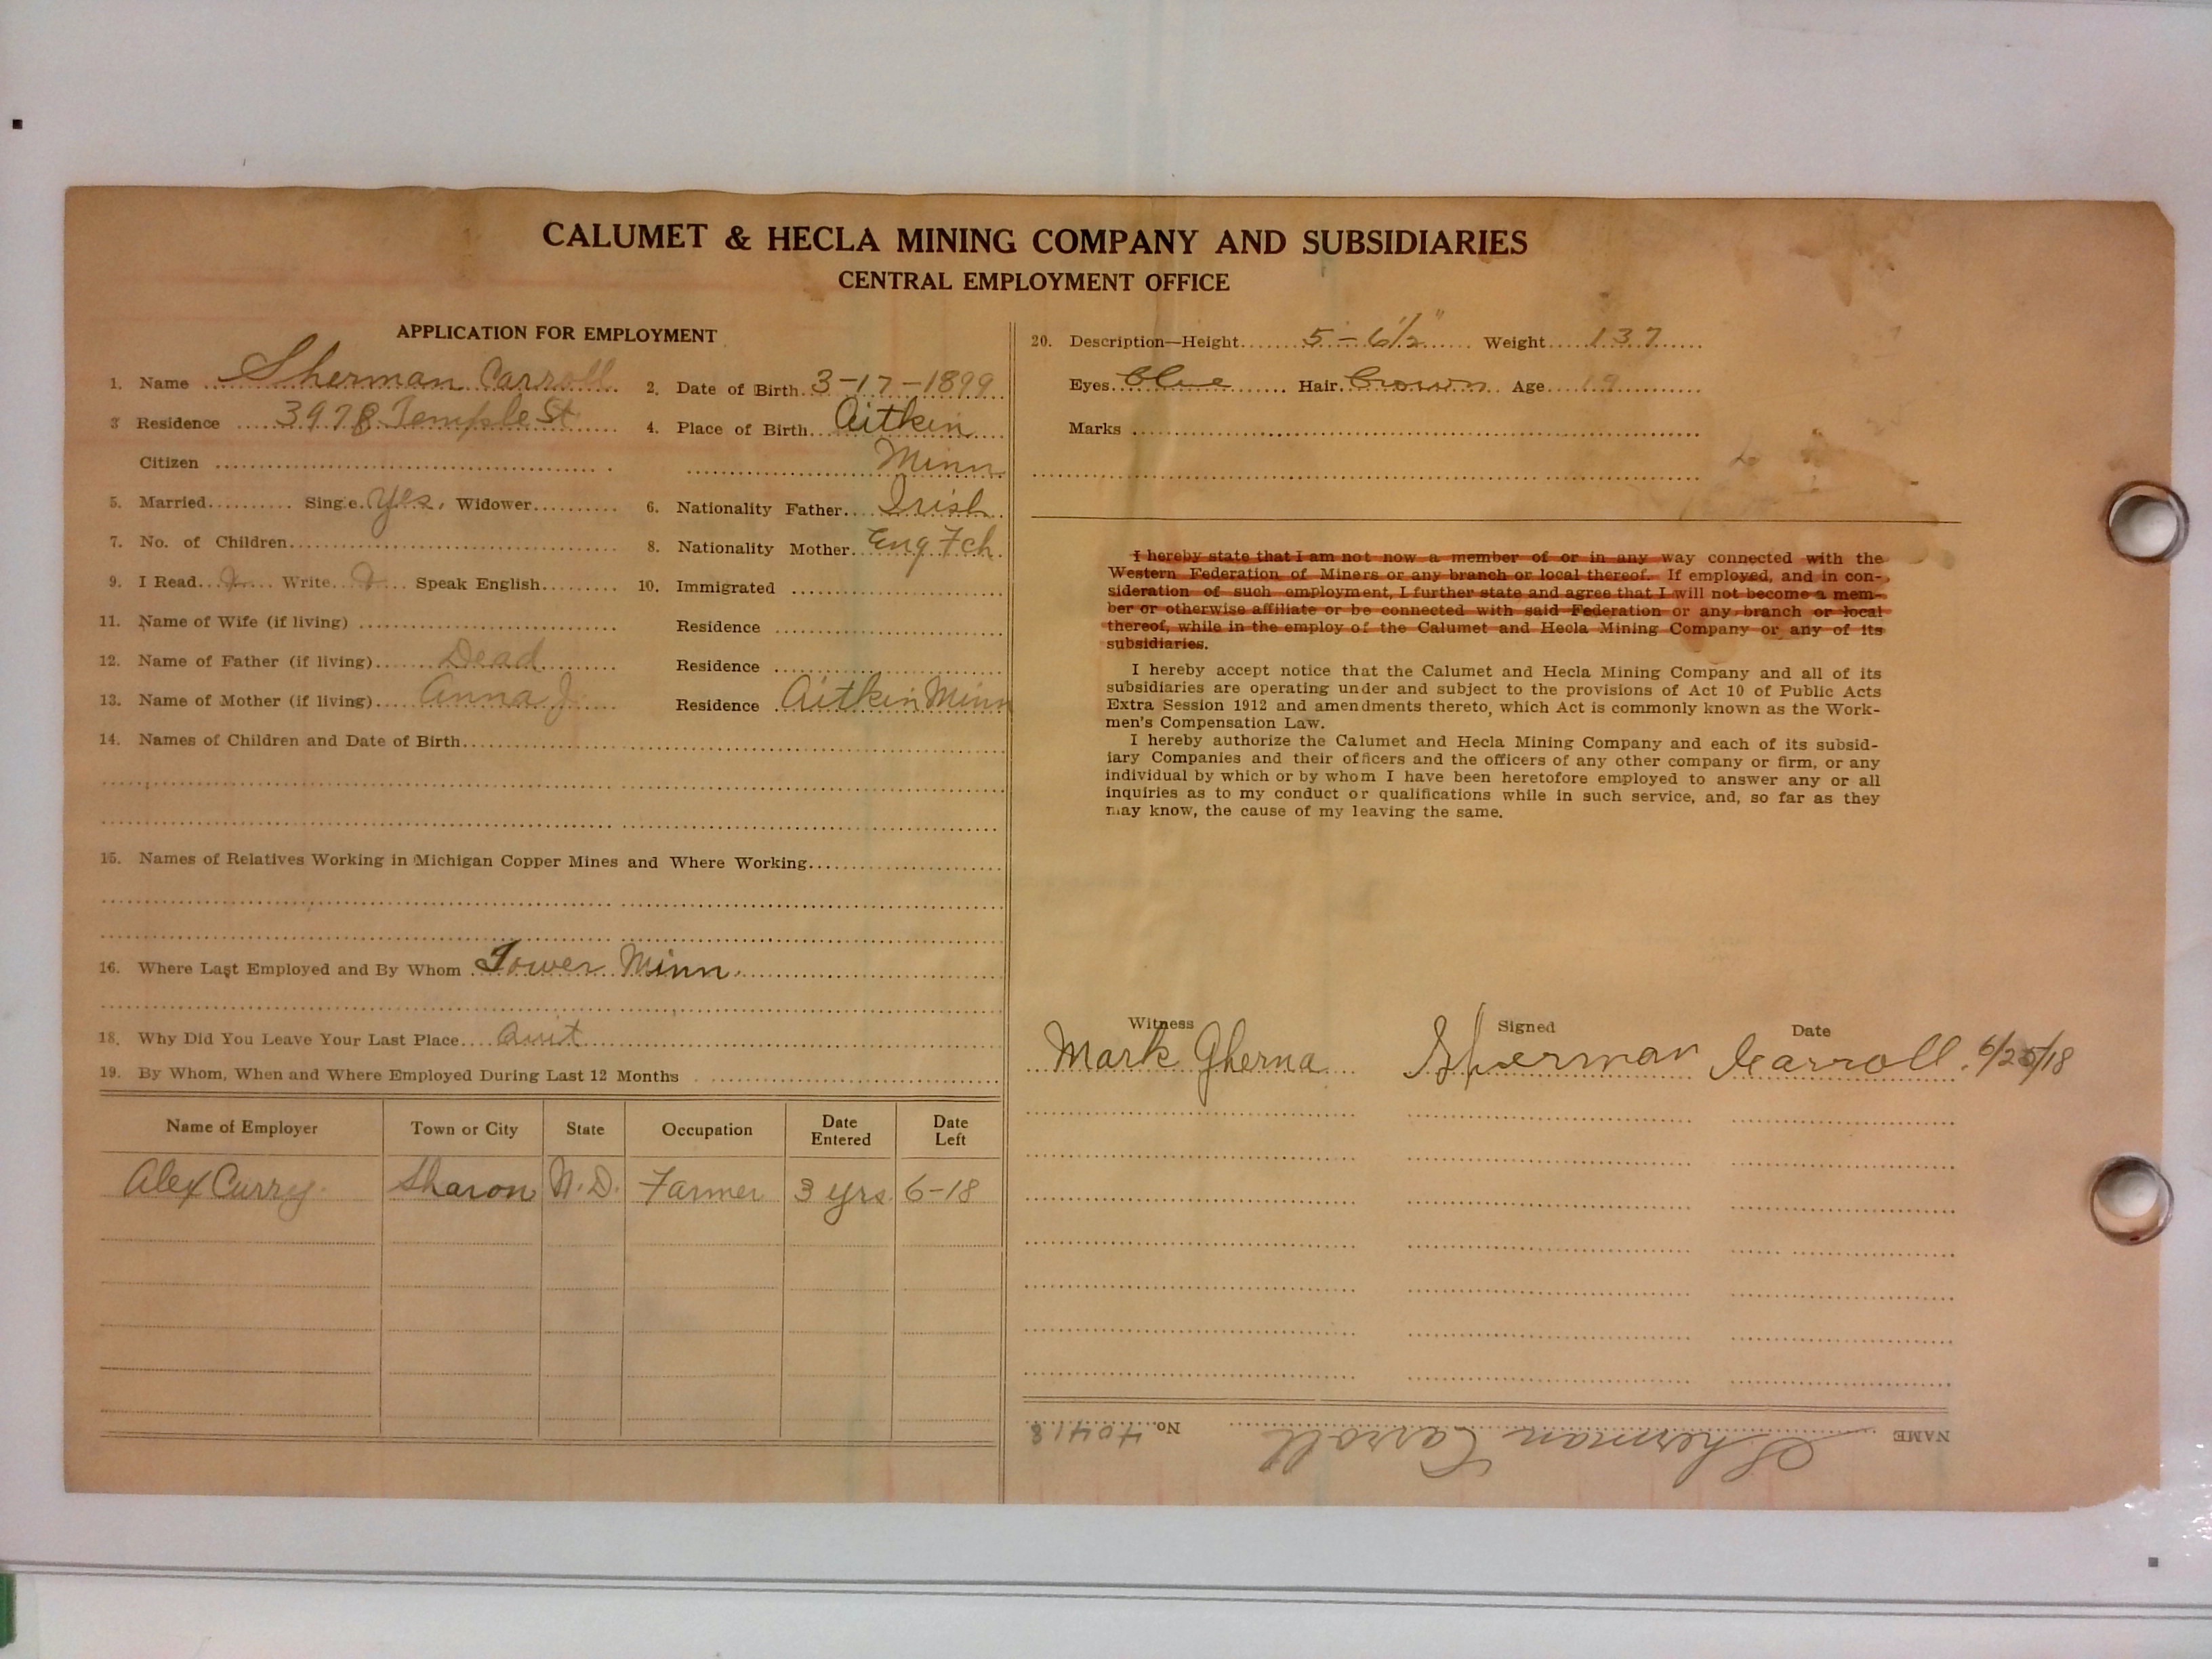 CALUMET & HECLA MINING COMPANY AND SUBSIDIARIES
CENTRAL EMPLOYMENT OFFICE
APPLICATION FOR EMPLOYMENT
1. Name Sherman Carroll 2. Date of Birth 3-17-1899
3 Residence 3978 Temple St 4. Place of Birth Aitkin
Citizen Minn
5. Married Single Yes, Widower 6. Nationality Father Irish
7. No. of Children 8. Nationality Mother Eng Fch
9. I Read Write Speak English 10. Immigrated
11. Name of Wife (if living) Residence
12. Name of Father (if living) Dead Residence
13. Name of Mother (if living) Anna J Residence Aitkin Minn
14. Names of Children and Date of Birth
15. Names of Relatives Working in Michigan Copper Mines and Where Working
16. Where Last Employed and By Whom Tower Minn.
18. Why Did You Leave Your Last Place Quit
19. By Whom, When and Where Employed During Last 12 Months
Name of Employer Town or City State Occupation Date Entered Date Left
Alex Curry Sharon N.D. Farmer 3 yrs. 6-18
20. Description—Height 5-6½" Weight 137
Eyes Blue Hair Brown Age 19
Marks
I hereby state that I am not now a member of or in any way connected with the
Western Federation of Miners or any branch or local thereof. If employed, and in con-
sideration of such employment, I further state and agree that I will not become a mem-
ber or otherwise affiliate or be connected with said Federation or any branch or local
thereof, while in the employ of the Calumet and Hecla Mining Company or any of its
subsidiaries.
I hereby accept notice that the Calumet and Hecla Mining Company and all of its
subsidiaries are operating under and subject to the provisions of Act 10 of Public Acts
Extra Session 1912 and amendments thereto, which Act is commonly known as the Work-
men's Compensation Law.
I hereby authorize the Calumet and Hecla Mining Company and each of its subsid-
iary Companies and their officers and the officers of any other company or firm, or any
individual by which or by whom I have been heretofore employed to answer any or all
inquiries as to my conduct or qualifications while in such service, and, so far as they
may know, the cause of my leaving the same.
Witness Signed Date
Mark Gherna Sherman Carroll 6/25/18
NAME Sherman Carroll No. 40418